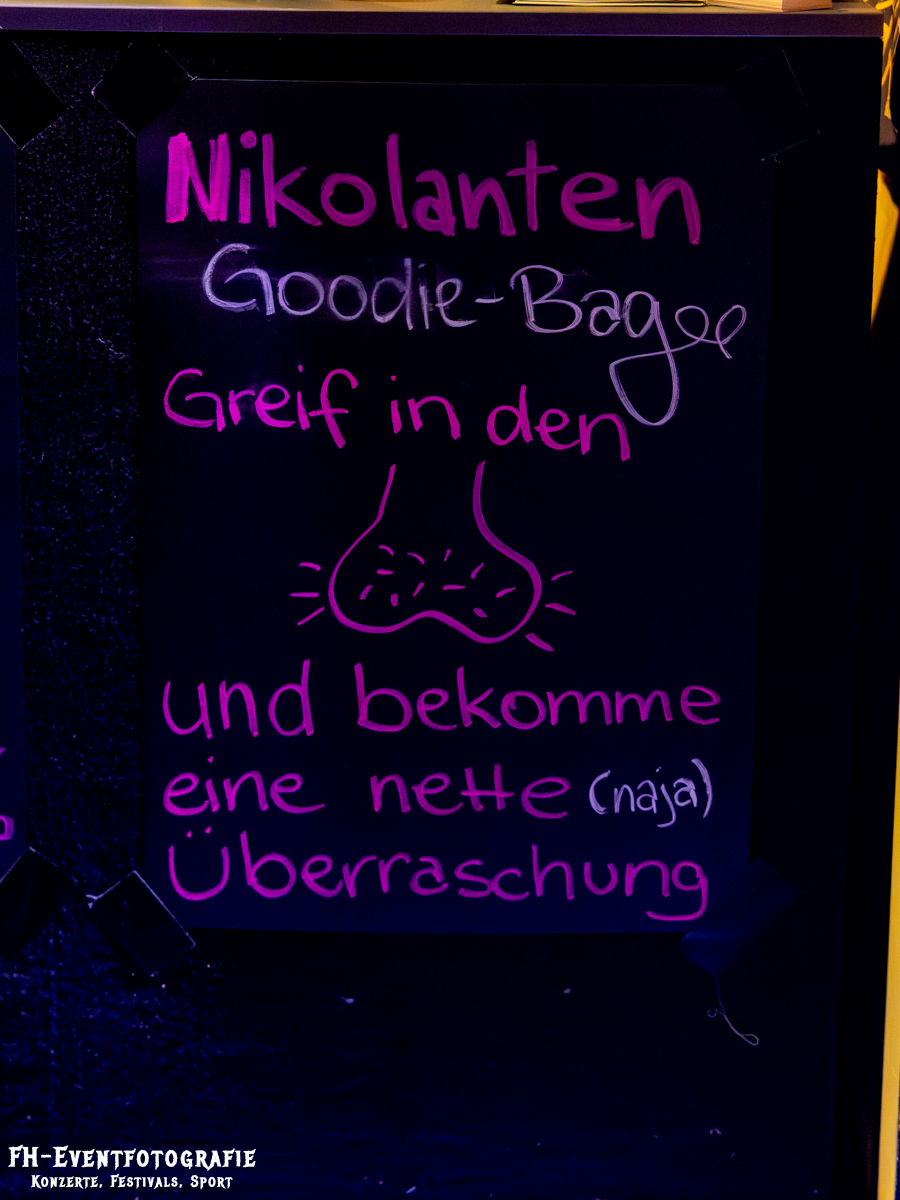 Nikolanten
Goodie-Bag
Greif in den
und bekomme
eine nette (naja)
Überraschung
FH-Eventfotografie
Konzerte, Festivals, Sport